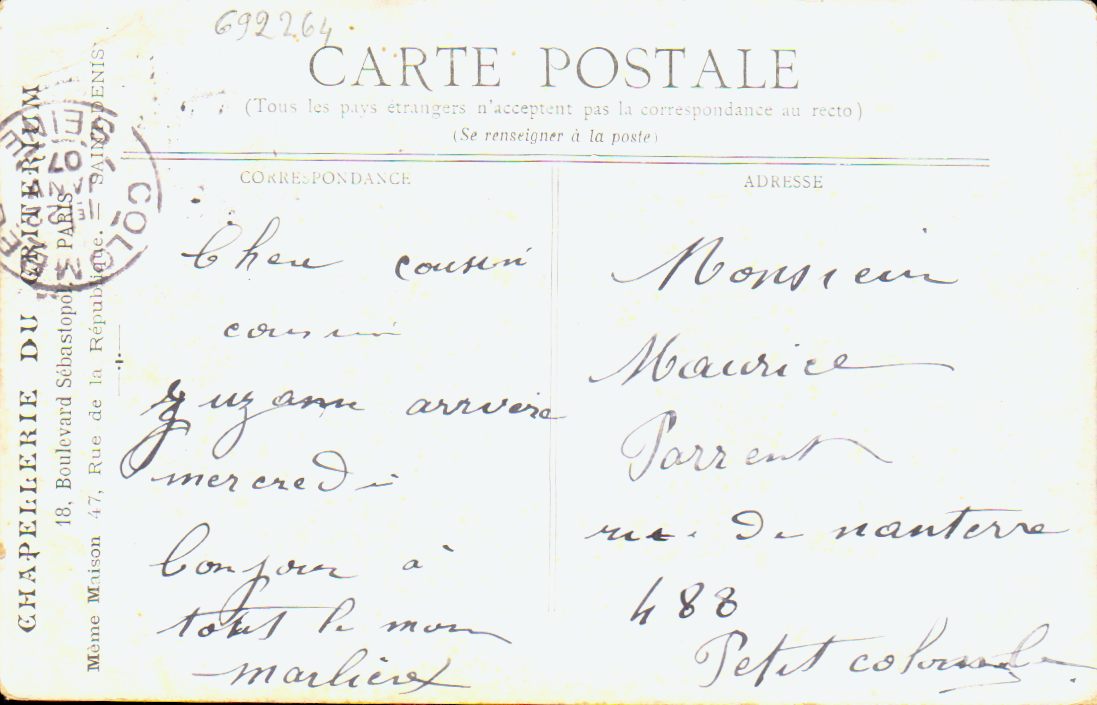 692264
CARTE POSTALE
(Tous les pays étrangers n'acceptent pas la correspondance au recto)
(Se renseigner à la poste)
CORRESPONDANCE
Cher cousin
cousin
Suzanne arrivera
mercredi
bonjour à
tous le mon
marlière
ADRESSE
Monsieur
Maurice
Parrent
rue de nanterre
488
Petit colombe
CHAPELLERIE DU CRITERIUM
18, Boulevard Sébastopol, PARIS
Même Maison 47, Rue de la République. — SAINT-DENIS
COLOMBES
SEINE
JANV
07